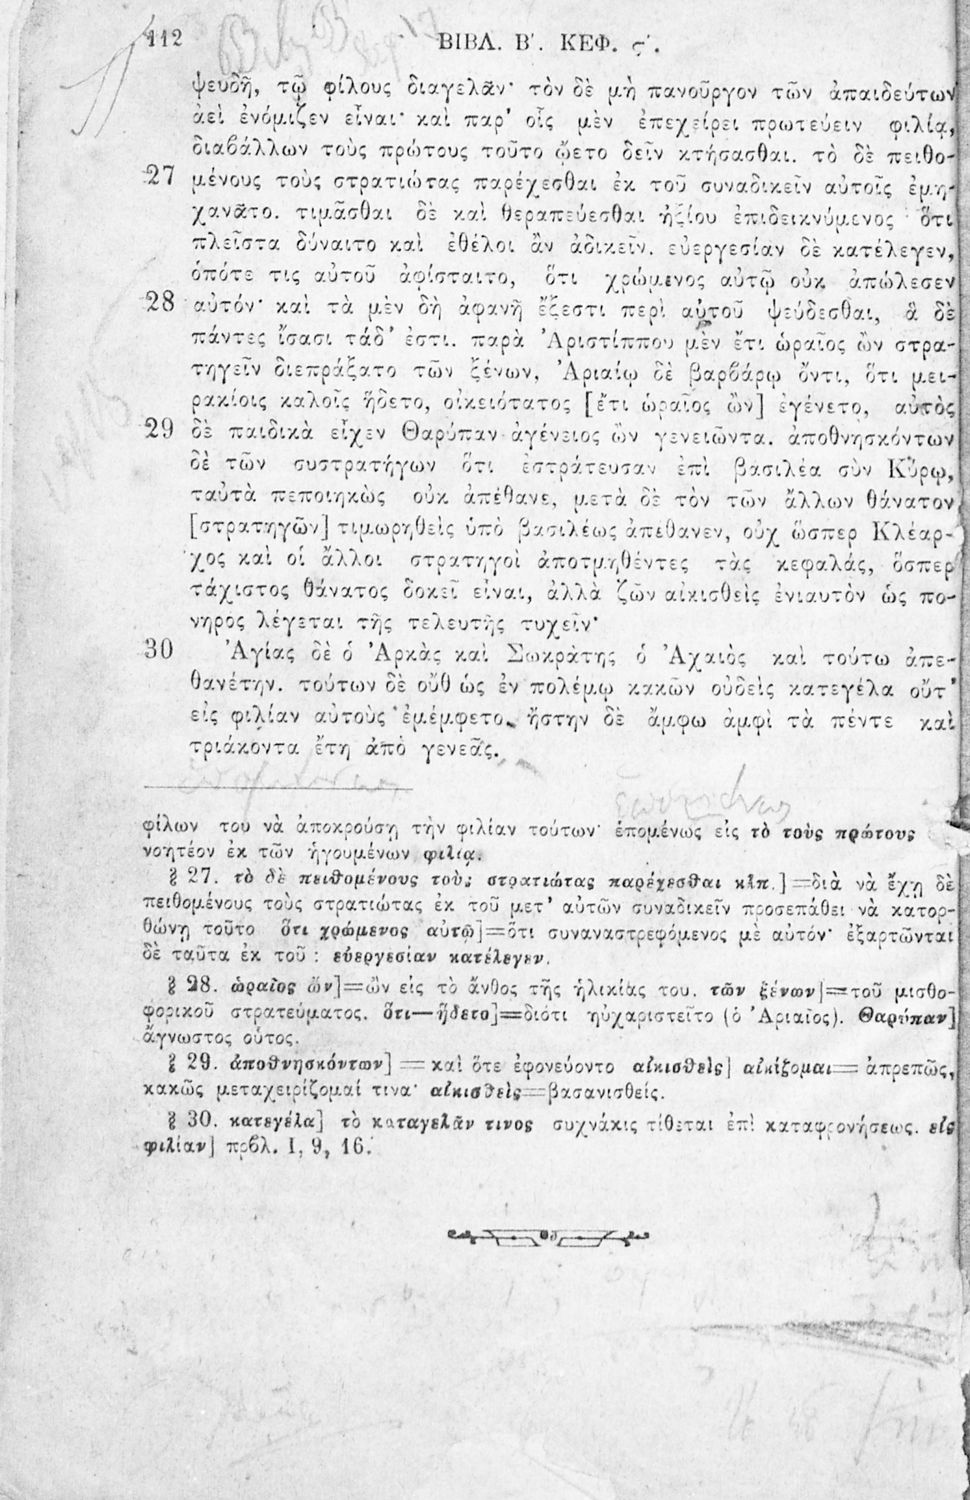 112
ΒΙΒΛ. Β΄. ΚΕΦ. ς΄.
ψευδῆ, τῷ φίλους διαγελᾶν· τὸν δὲ μὴ πανοῦργον τῶν ἀπαιδεύτων
ἀεὶ ἐνόμιζεν εἶναι· καὶ παρ' οἷς μὲν ἐπεχείρει πρωτεύειν φιλίᾳ,
διαβάλλων τοὺς πρώτους τοῦτο ᾤετο δεῖν κτήσασθαι. τὸ δὲ πειθο-
27 μένους τοὺς στρατιώτας παρέχεσθαι ἐκ τοῦ συναδικεῖν αὐτοῖς ἐμη-
χανᾶτο. τιμᾶσθαι δὲ καὶ θεραπεύεσθαι ἠξίου ἐπιδεικνύμενος ὅτι
πλεῖστα δύναιτο καὶ ἐθέλοι ἂν ἀδικεῖν. εὐεργεσίαν δὲ κατέλεγεν,
ὁπότε τις αὐτοῦ ἀφίσταιτο, ὅτι χρώμενος αὐτῷ οὐκ ἀπώλεσεν
28 αὐτόν· καὶ τὰ μὲν δὴ ἀφανῆ ἔξεστι περὶ αὐτοῦ ψεύδεσθαι, ἃ δὲ
πάντες ἴσασι τάδ' ἐστι. παρὰ Ἀριστίππου μὲν ἔτι ὡραῖος ὢν στρα-
τηγεῖν διεπράξατο τῶν ξένων, Ἀριαίῳ δὲ βαρβάρῳ ὄντι, ὅτι μει-
ρακίοις καλοῖς ἥδετο, οἰκειότατος [ἔτι ὡραῖος ὢν] ἐγένετο, αὐτὸς
29 δὲ παιδικὰ εἶχεν Θαρύπαν ἀγένειος ὢν γενειῶντα. ἀποθνησκόντων
δὲ τῶν συστρατήγων ὅτι ἐστράτευσαν ἐπὶ βασιλέα σὺν Κύρῳ,
ταὐτὰ πεποιηκὼς οὐκ ἀπέθανε, μετὰ δὲ τὸν τῶν ἄλλων θάνατον
[στρατηγῶν] τιμωρηθεὶς ὑπὸ βασιλέως ἀπέθανεν, οὐχ ὥσπερ Κλέαρ-
χος καὶ οἱ ἄλλοι στρατηγοὶ ἀποτμηθέντες τὰς κεφαλάς, ὅσπερ
τάχιστος θάνατος δοκεῖ εἶναι, ἀλλὰ ζῶν αἰκισθεὶς ἐνιαυτὸν ὡς πο-
νηρος λέγεται τῆς τελευτῆς τυχεῖν·
30 Ἀγίας δὲ ὁ Ἀρκὰς καὶ Σωκράτης ὁ Ἀχαιὸς καὶ τούτω ἀπε-
θανέτην. τούτων δὲ οὔθ ὡς ἐν πολέμῳ κακῶν οὐδεὶς κατεγέλα οὔτ'
εἰς φιλίαν αὐτοὺς ἐμέμφετο. ἤστην δὲ ἄμφω ἀμφὶ τὰ πέντε καὶ
τριάκοντα ἔτη ἀπὸ γενεᾶς.
φίλων του νὰ ἀποκρούσῃ τὴν φιλίαν τούτων· ἑπομένως εἰς τὸ τοὺς πρώτους
νοητέον ἐκ τῶν ἡγουμένων φιλίᾳ.
§ 27. τὸ δὲ πειθομένους τοὺς στρατιώτας παρέχεσθαι κλπ.]=διὰ νὰ ἔχῃ δὲ
πειθομένους τοὺς στρατιώτας ἐκ τοῦ μετ' αὐτῶν συναδικεῖν προσεπάθει νὰ κατορ-
θώνῃ τοῦτο ὅτι χρώμενος αὐτῷ]=ὅτι συναναστρεφόμενος μὲ αὐτόν· ἐξαρτῶνται
δὲ ταῦτα ἐκ τοῦ : εὐεργεσίαν κατέλεγεν.
§ 28. ὡραῖος ὤν]=ὢν εἰς τὸ ἄνθος τῆς ἡλικίας του. τῶν ξένων]=τοῦ μισθο-
φορικοῦ στρατεύματος. ὅτι—ἥδετο]=διότι ηὐχαριστεῖτο (ὁ Ἀριαῖος). Θαρύπαν]
ἄγνωστος οὗτος.
§ 29. ἀποθνησκόντων]=καὶ ὅτε ἐφονεύοντο αἰκισθεὶς] αἰκίζομαι=ἀπρεπῶς,
κακῶς μεταχειρίζομαί τινα· αἰκισθεὶς=βασανισθείς.
§ 30. κατεγέλα] τὸ καταγελᾶν τινος συχνάκις τίθεται ἐπὶ καταφρονήσεως. εἰς
φιλίαν] πρβλ. Ι, 9, 16.